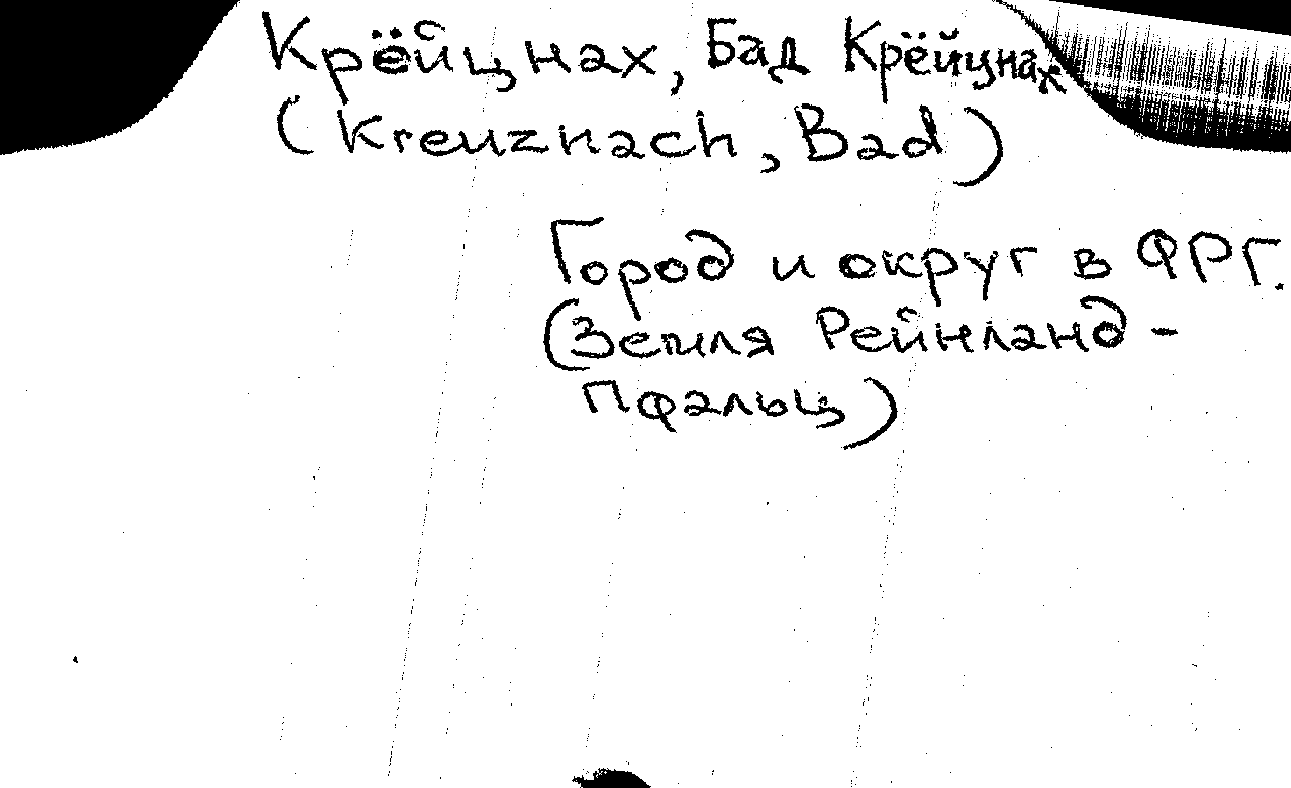 Крёйцнах, Бад Крёйцнах
(Kreuznach, Bad)
Город и округ в ФРГ.
(Земля Рейнланд-
Пфальц)